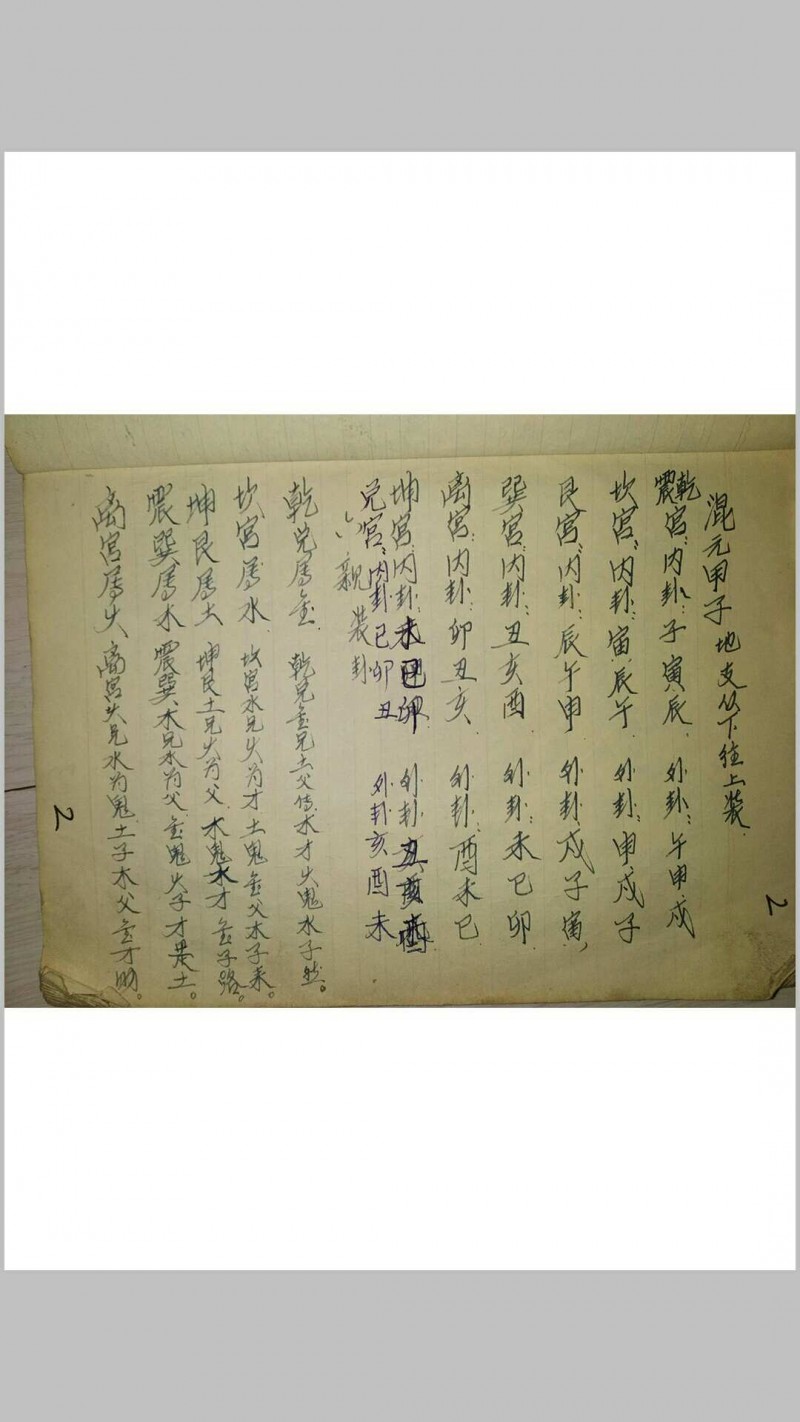 混元甲子 地支从下往上装
乾震宫：内卦：子寅辰 外卦：午申戌
坎宫：内卦：寅辰午 外卦：申戌子
艮宫：内卦：辰午申 外卦：戌子寅，
巽宫：内卦：丑亥酉 外卦：未巳卯
离宫：内卦：卯丑亥 外卦：酉未巳
坤宫：内卦：未巳卯 外卦：丑亥酉
兑宫：内卦：巳卯丑 外卦亥酉未
六親装卦
乾兑属金 乾兑金兄土父传木才火鬼水子然。
坎宫属水 坎宫水兄火为才土鬼金父木子来。
坤艮属土 坤艮土兄火为父木鬼水才金子路。
震巽属木 震巽木兄水为父金鬼火子才是土。
离宫属火 离宫火兄水为鬼土子木父金才助。
2
2